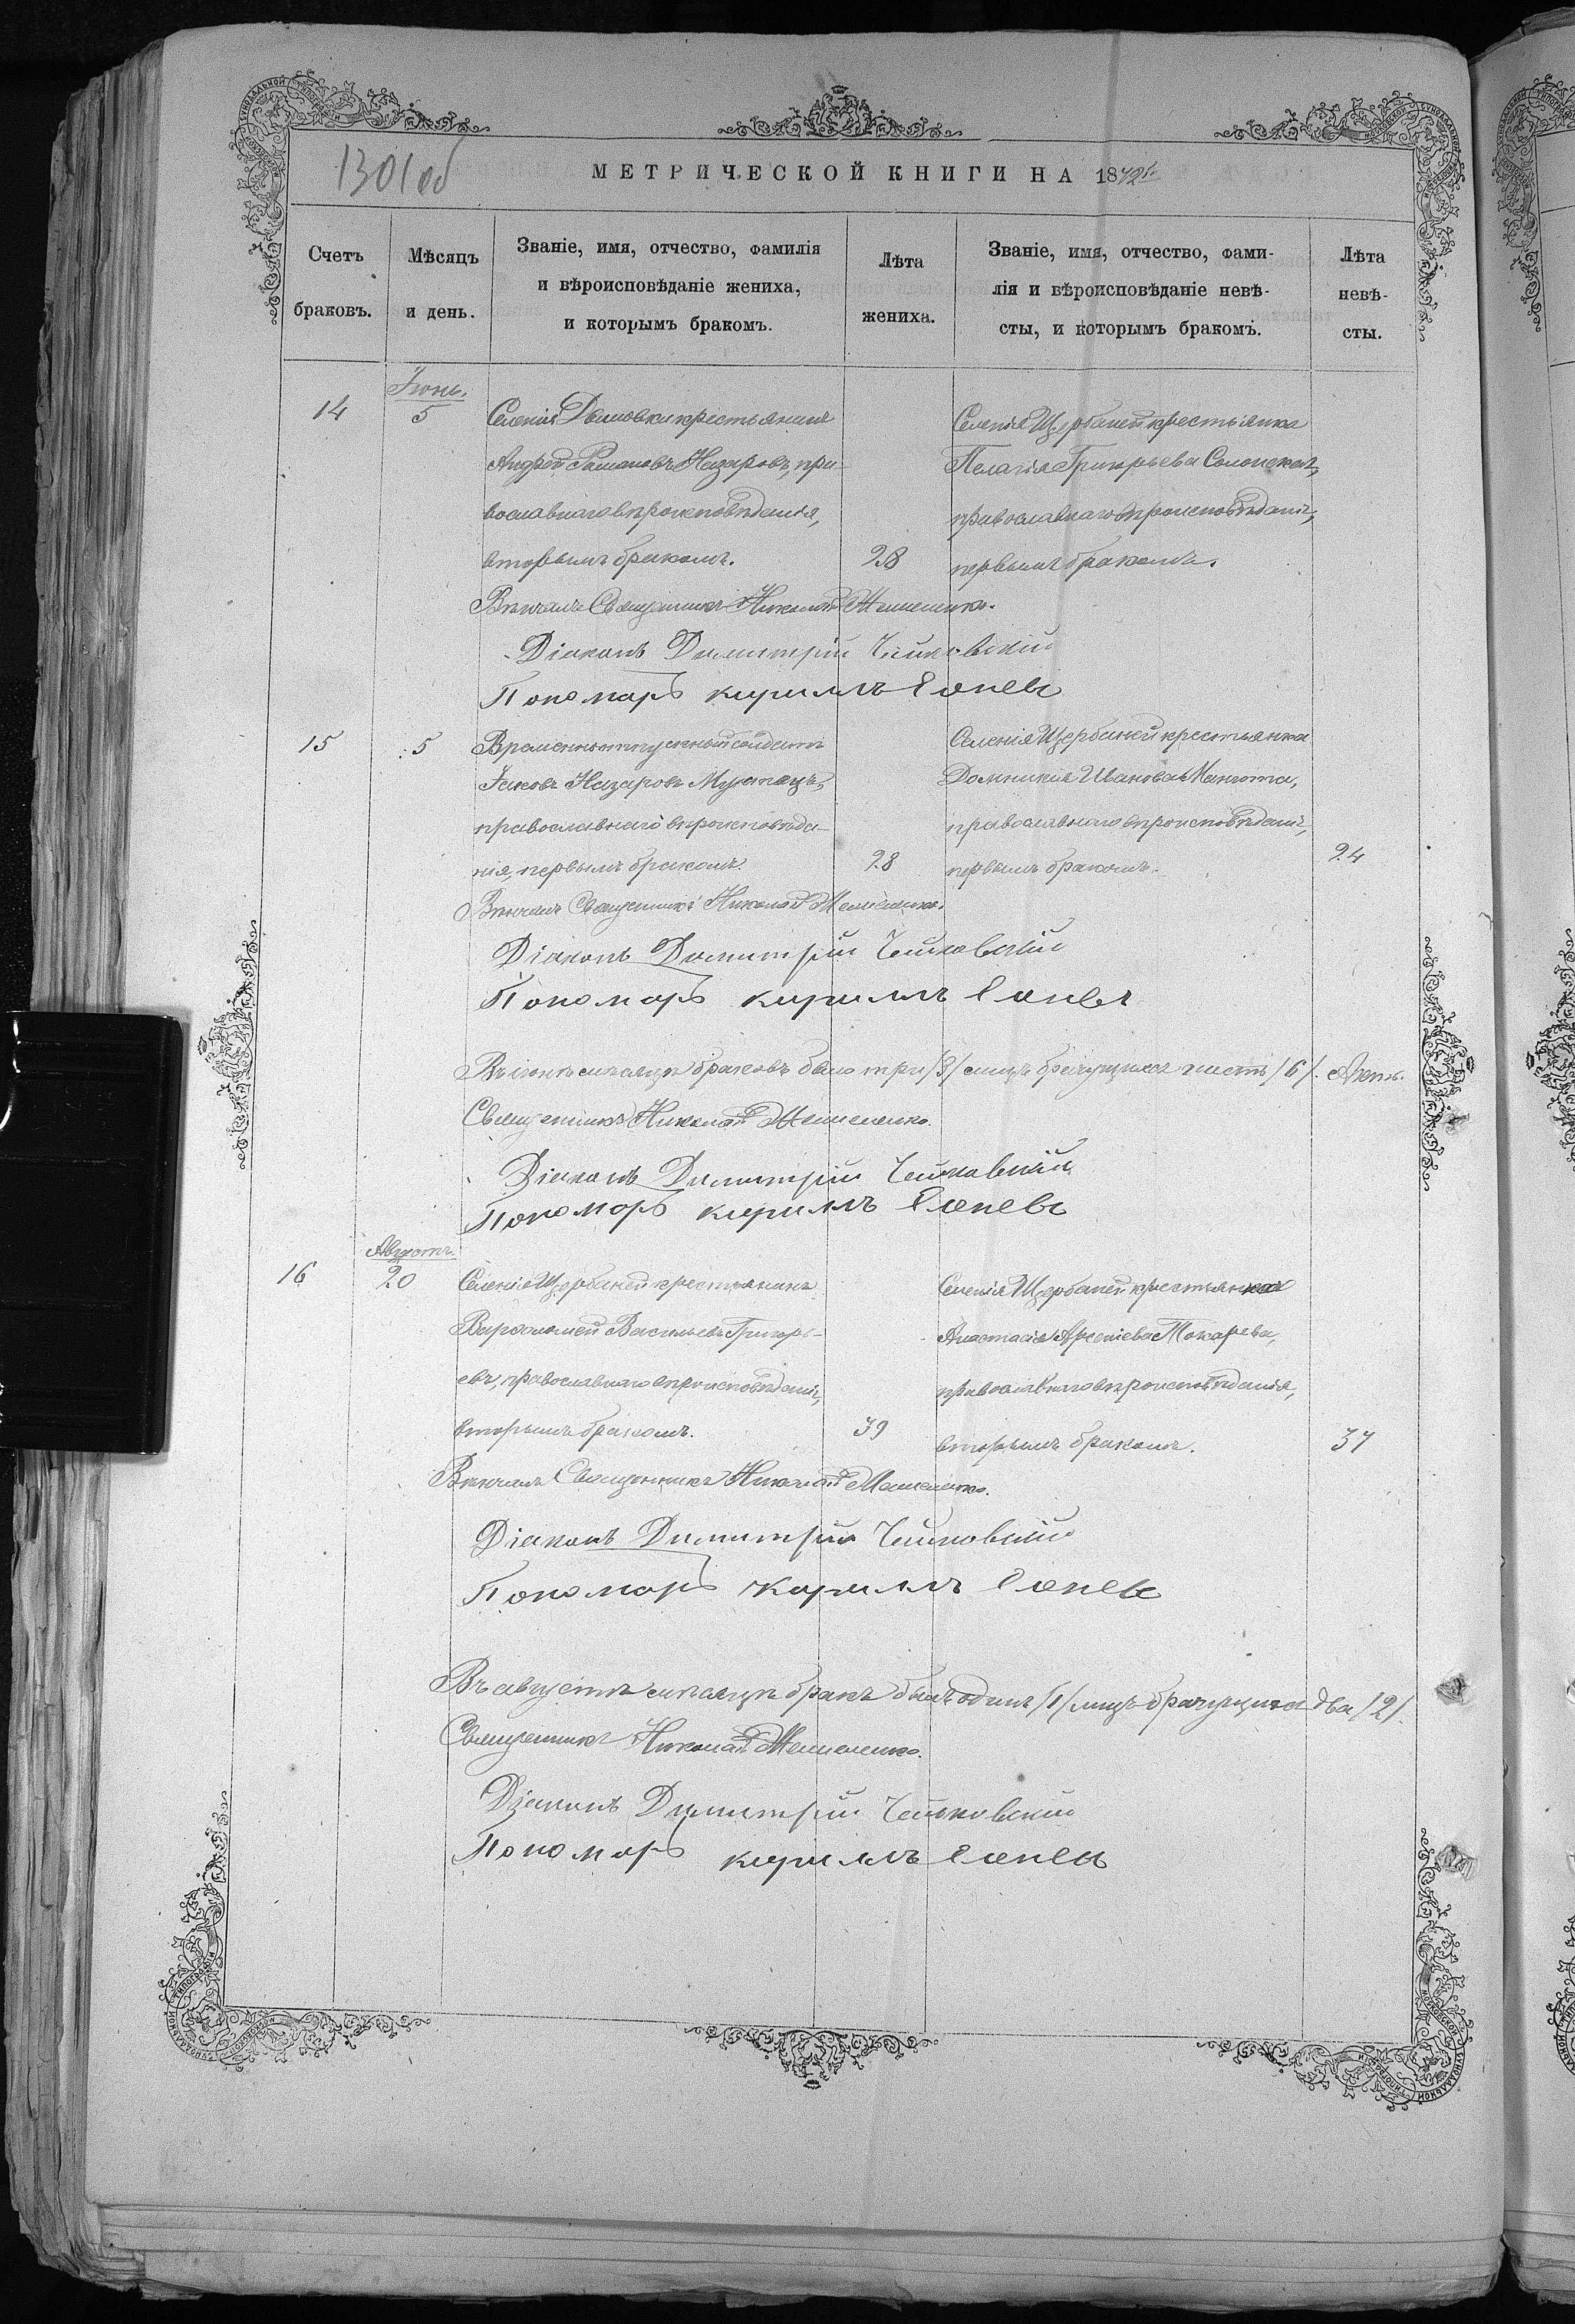 1301об
МЕТРИЧЕСКОЙ КНИГИ НА 1872 г.
Счетъ браковъ.
Мѣсяцъ и день.
Званіе, имя, отчество, фамилія
и вѣроисповѣданіе жениха,
и которымъ бракомъ.
Лѣта жениха.
Званіе, имя, отчество, фами-
лія и вѣроисповѣданіе невѣ-
сты, и которымъ бракомъ.
Лѣта невѣ-
сты.
Іюнь.
14 5 Селенія крестьянинъ
Андрей Романовъ Назаровъ, пра-
вославнаго вѣроисповѣданія,
вторымъ бракомъ. 28
Селенія Щербаней крестьянка
Пелагія Григорьева
православнаго вѣроисповѣданія,
первымъ бракомъ.
Вѣнчалъ Священникъ Николай
Діаконъ Димитрій
Пономарь Кириллъ
15 5 Временноотпускной солдатъ
Іаковъ Назаровъ
православнаго вѣроисповѣда-
нія, первымъ бракомъ. 28
Селенія Щербаней крестьянка
Домникія Иванова
православнаго вѣроисповѣданія,
первымъ бракомъ. 24
Вѣнчалъ Священникъ Николай
Діаконъ Димитрій
Пономарь Кириллъ
Въ іюнѣ мѣсяцѣ браковъ было три /3/ лицъ брачущихся шесть /6/.
Священникъ Николай
Діаконъ Димитрій
Пономарь Кириллъ
Августъ.
16 20 Селенія Щербаней крестьянинъ
Варфоломей Васильевъ Григорь-
евъ, православнаго вѣроисповѣданія,
вторымъ бракомъ. 39
Селенія Щербаней крестьянка
Анастасія Арсеніева Токарева,
православнаго вѣроисповѣданія,
вторымъ бракомъ. 37
Вѣнчалъ Священникъ Николай
Діаконъ Димитрій
Пономарь Кириллъ
Въ августѣ мѣсяцѣ бракъ былъ одинъ /1/ лицъ брачущихся два /2/.
Священникъ Николай
Діаконъ Димитрій
Пономарь Кириллъ